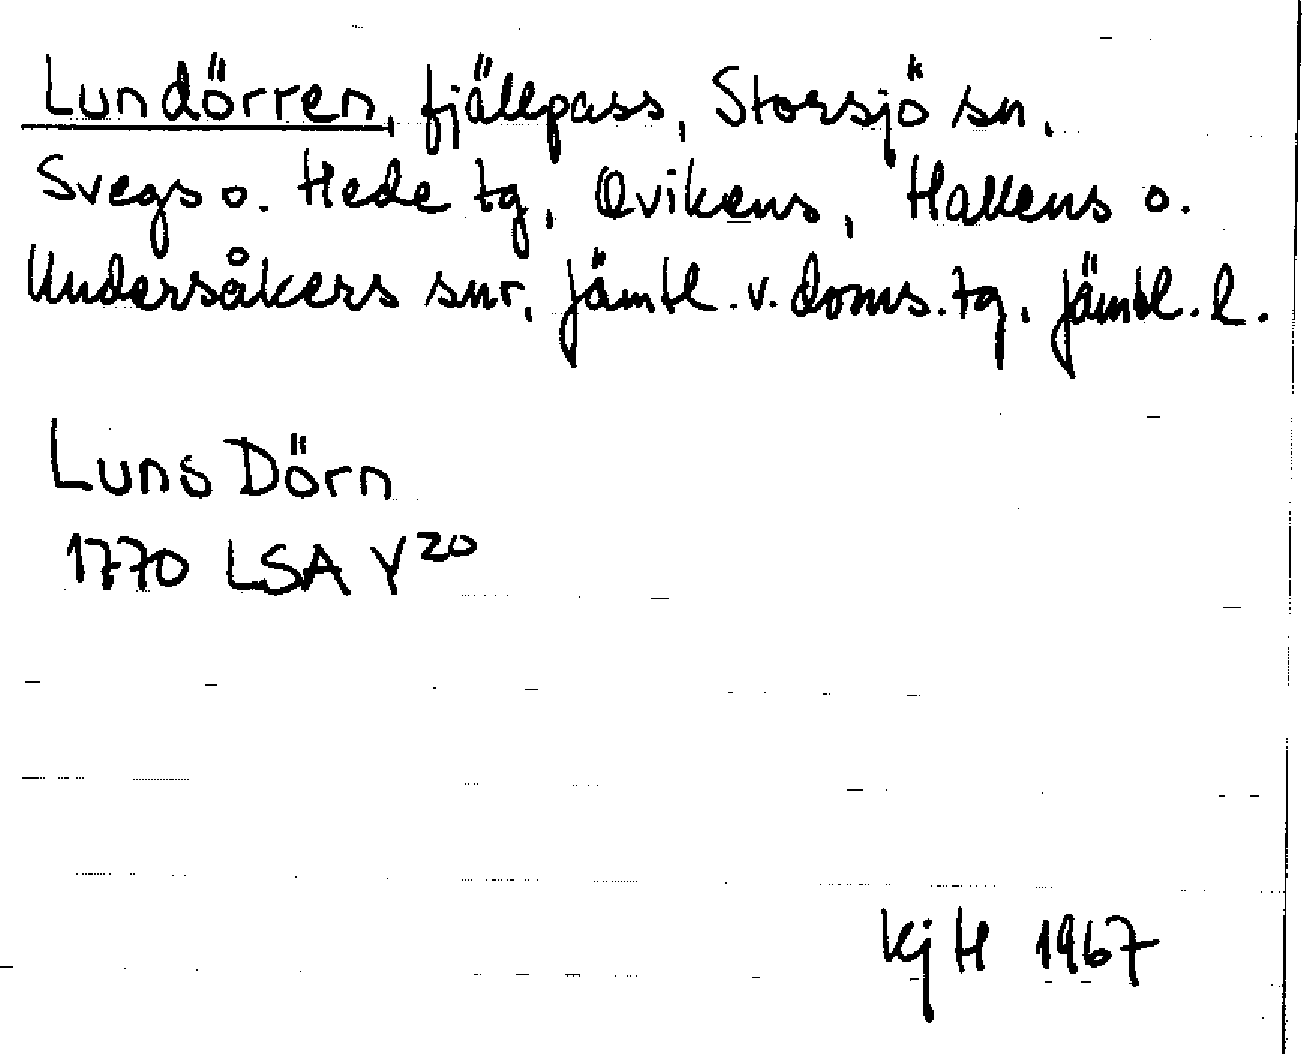 Lundörren, fjällpass, Storsjö sn,
Svegs o. Hede tg, Ovikens, Hallens o.
Undersåkers snr, Jämtl. v. doms. tg, Jämtl. l.
Luns Dörn
1770 LSA Y 20
Kj H 1967